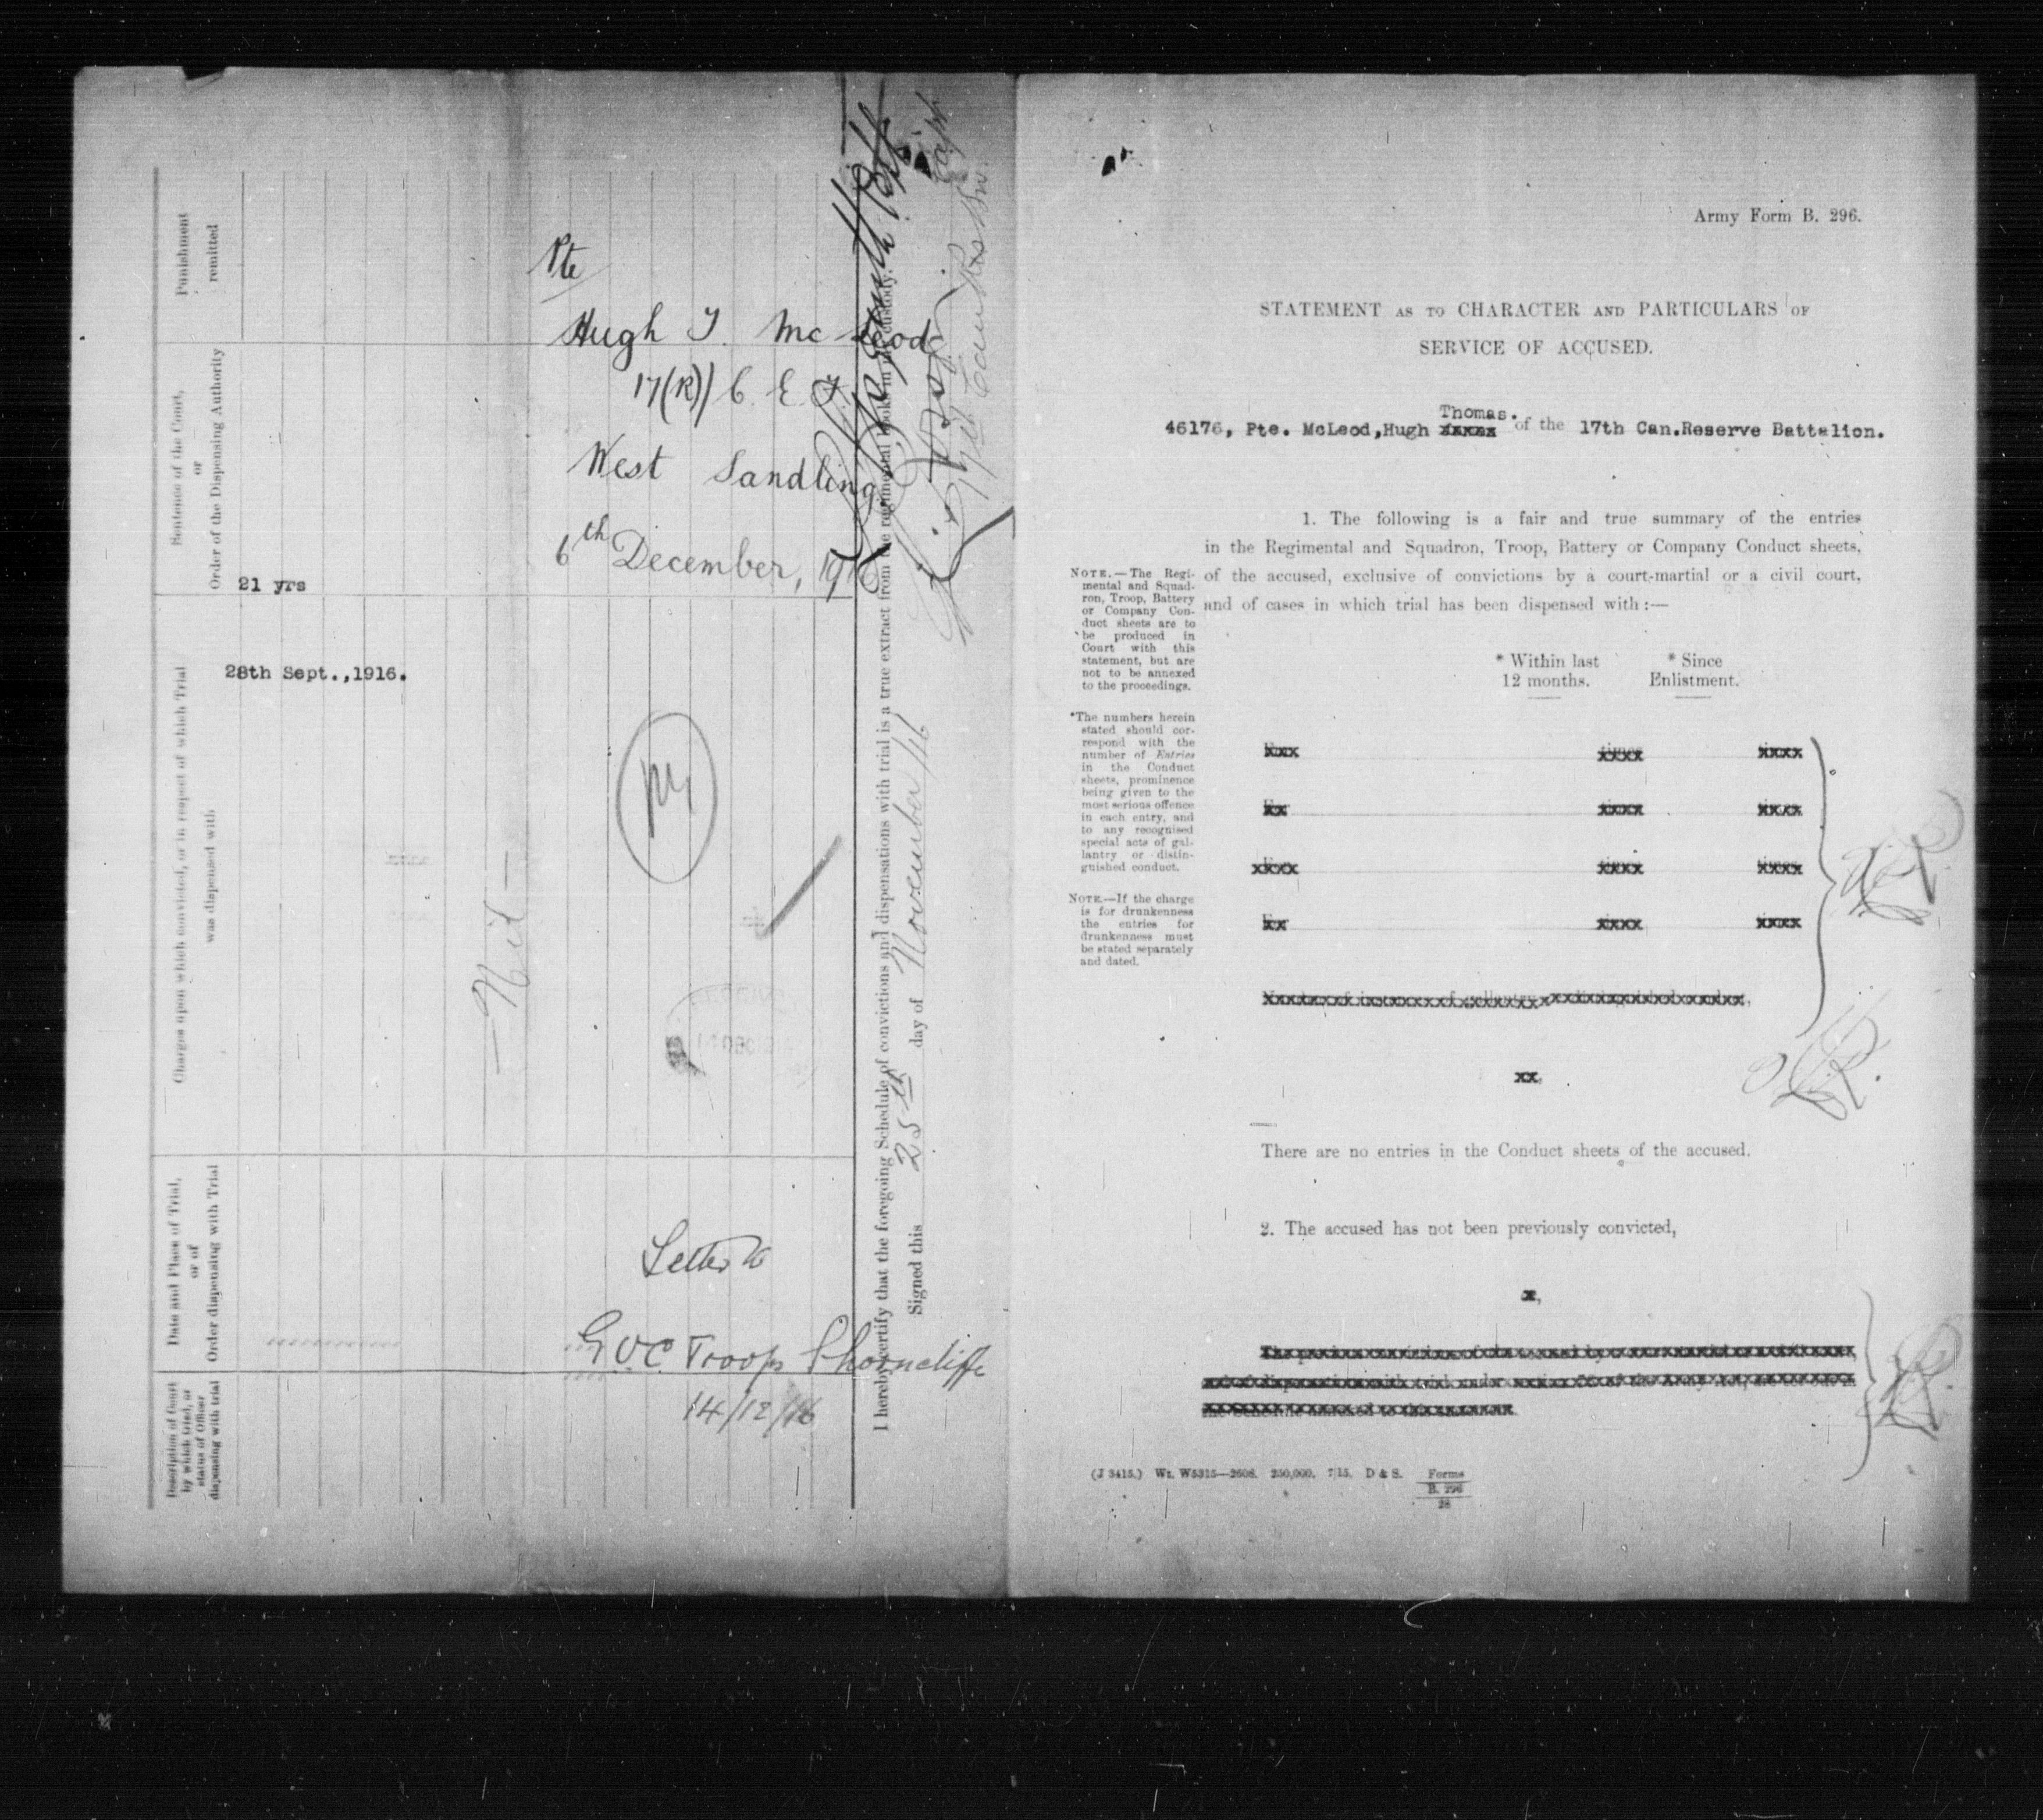 Punishment
remitted
Sentence of the Court,
or
Order of the Dispensing Authority
Charges upon which convicted, or in respect of which Trial
was dispensed with
Date and Place of Trial,
or of
Order dispensing with Trial
Description of Court
by which tried, or
status of Officer
dispensing with trial
21 yrs
28th Sept.,1916.
- Nil -
Pte
Hugh T. McLeod
17(R)) C. E. F.
West Sandling
6th December, 1916
Letter to
G.O.C Troops Shorncliffe
14/12/16
I hereby certify that the foregoing Schedule of convictions and dispensations with trial is a true extract from the regimental books in my custody.
Signed this 25th day of November/16
Army Form B. 296.
STATEMENT AS TO CHARACTER AND PARTICULARS OF
SERVICE OF ACCUSED.
Thomas.
46176, Pte. McLeod,Hugh xxxxx of the 17th Can.Reserve Battalion.
1. The following is a fair and true summary of the entries
in the Regimental and Squadron, Troop, Battery or Company Conduct sheets,
of the accused, exclusive of convictions by a court-martial or a civil court,
and of cases in which trial has been dispensed with :—
NOTE.—The Regi-
mental and Squad-
ron, Troop, Battery
or Company Con-
duct sheets are to
be produced in
Court with this
statement, but are
not to be annexed
to the proceedings.
* Within last
12 months.
* Since
Enlistment.
*The numbers herein
stated should cor-
respond with the
number of Entries
in the Conduct
sheets, prominence
being given to the
most serious offence
in each entry, and
to any recognised
special acts of gal-
lantry or distin-
guished conduct.
NOTE.—If the charge
is for drunkenness
the entries for
drunkenness must
be stated separately
and dated.
There are no entries in the Conduct sheets of the accused.
2. The accused has not been previously convicted,
(J 3415.) Wt. W5315—2608. 250,000. 7/15. D & S. Forms
B. 296
28